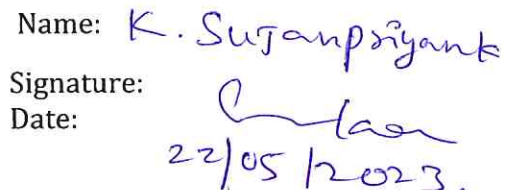 Name: K. Sujanpriyank
Signature:
Date:
22/05/2023.